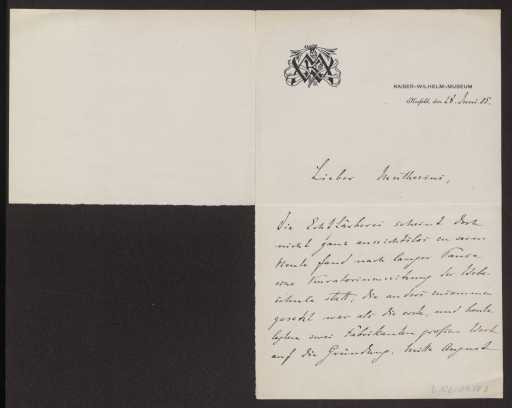 KAISER-WILHELM-MUSEUM
Krefeld, den 28. Juni 05.
Lieber Muthesius,
Die Echtfärberei scheint doch
nicht ganz aussichtslos zu sein.
Heute fand nach langer Pause
eine Kuratoriumssitzung der Webe-
schule statt, die anders zusammen
gesetzt war als die erste, und heute
legten zwei Fabrikanten großen Wert
auf die Gründung. Mitte August